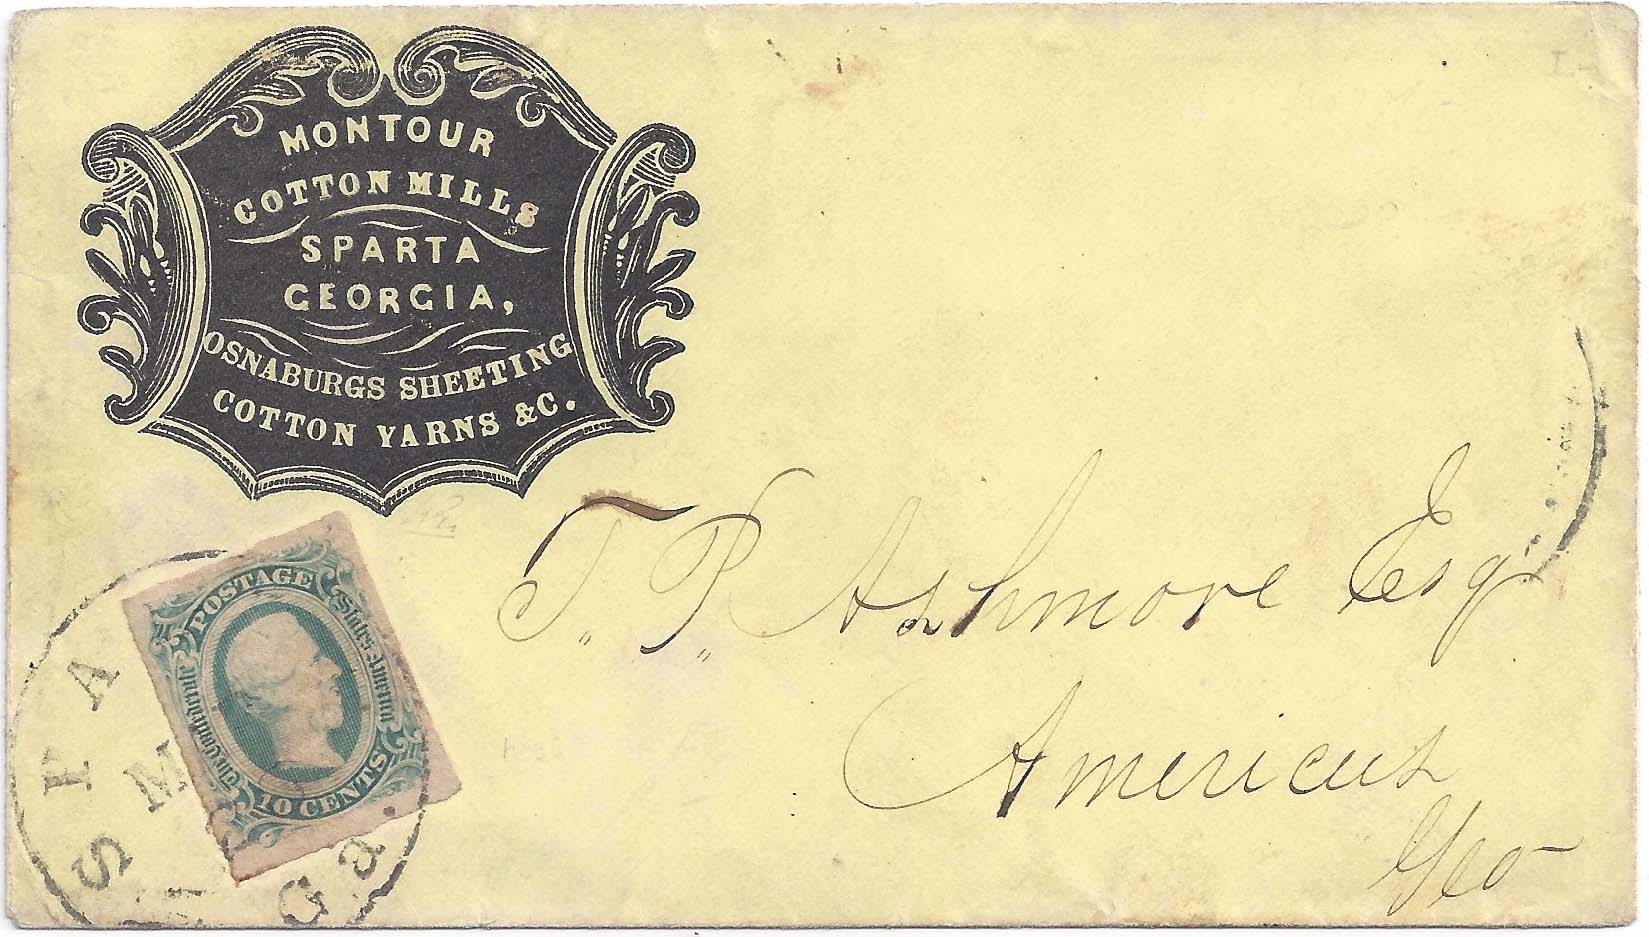 MONTOUR
COTTON MILLS
SPARTA
GEORGIA,
OSNABURGS SHEETING
COTTON YARNS &C.
POSTAGE
The Confederate
States America
10 CENTS
SPA
M
Ga.
T. P. Ashmore Esqr
Americus
Geo